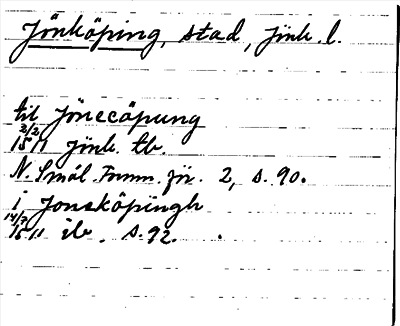 Jönköping, stad, Jönk. l.
til Jönecöpung
2/2 1511 Jönk. tb.
N. Smål. Fornm. för. 2, s. 90.
i Jonsköpingh
14/7 1511 ib. s. 92.